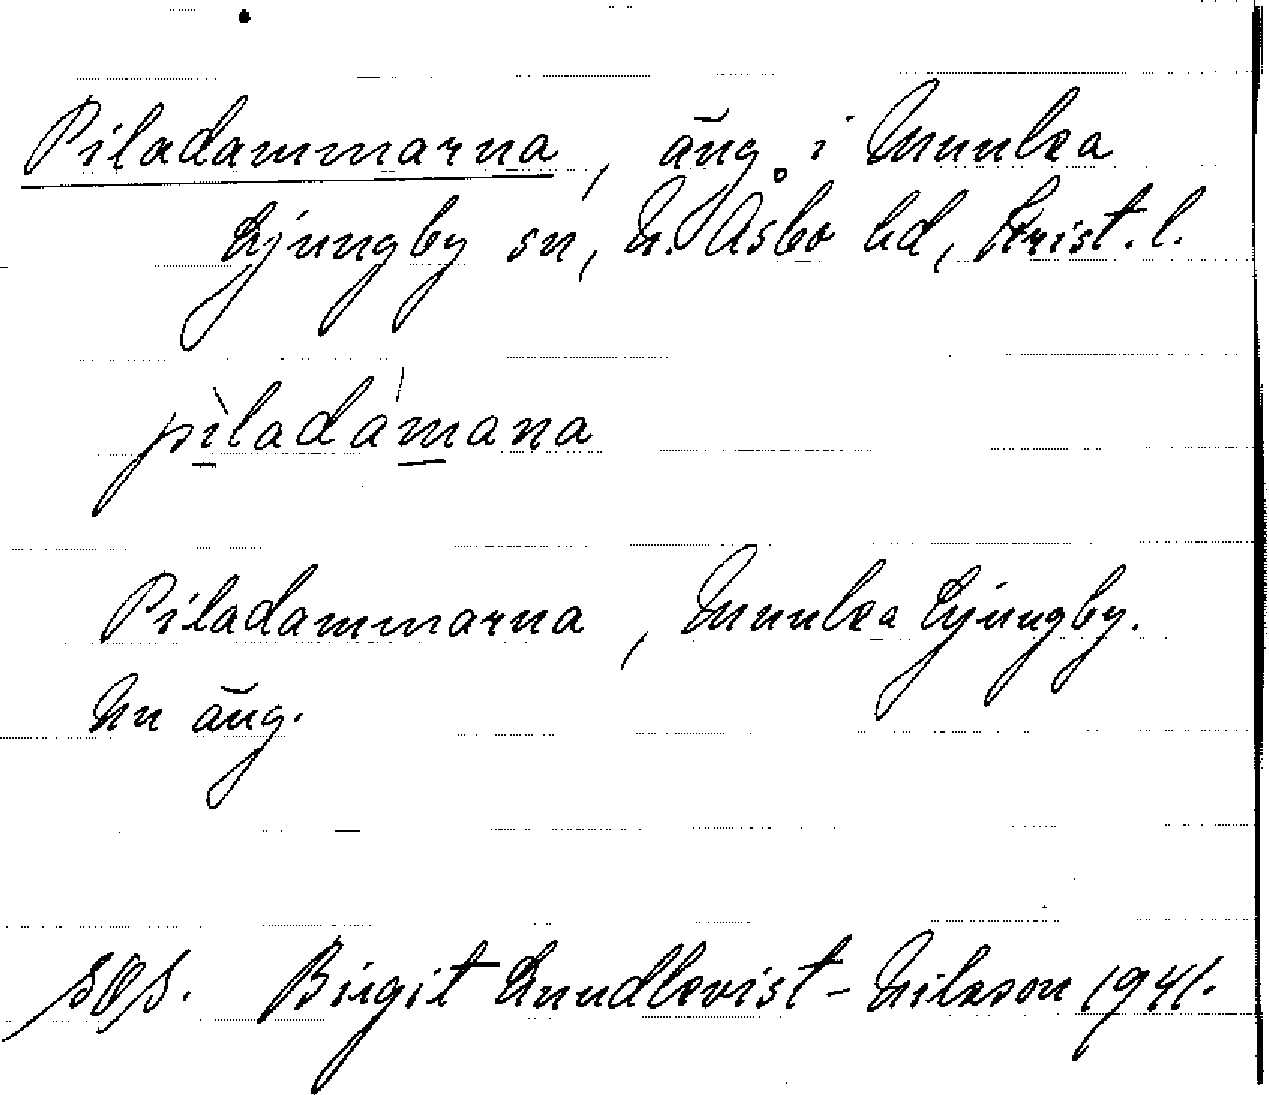 Piladammarna, äng i Munka
Ljungby sn, N. Åsbo hd, Krist. l.
pìladámana
Piladammarna, Munka Ljungby.
En äng.
Birgit Lundkvist-Nilsson 1941.